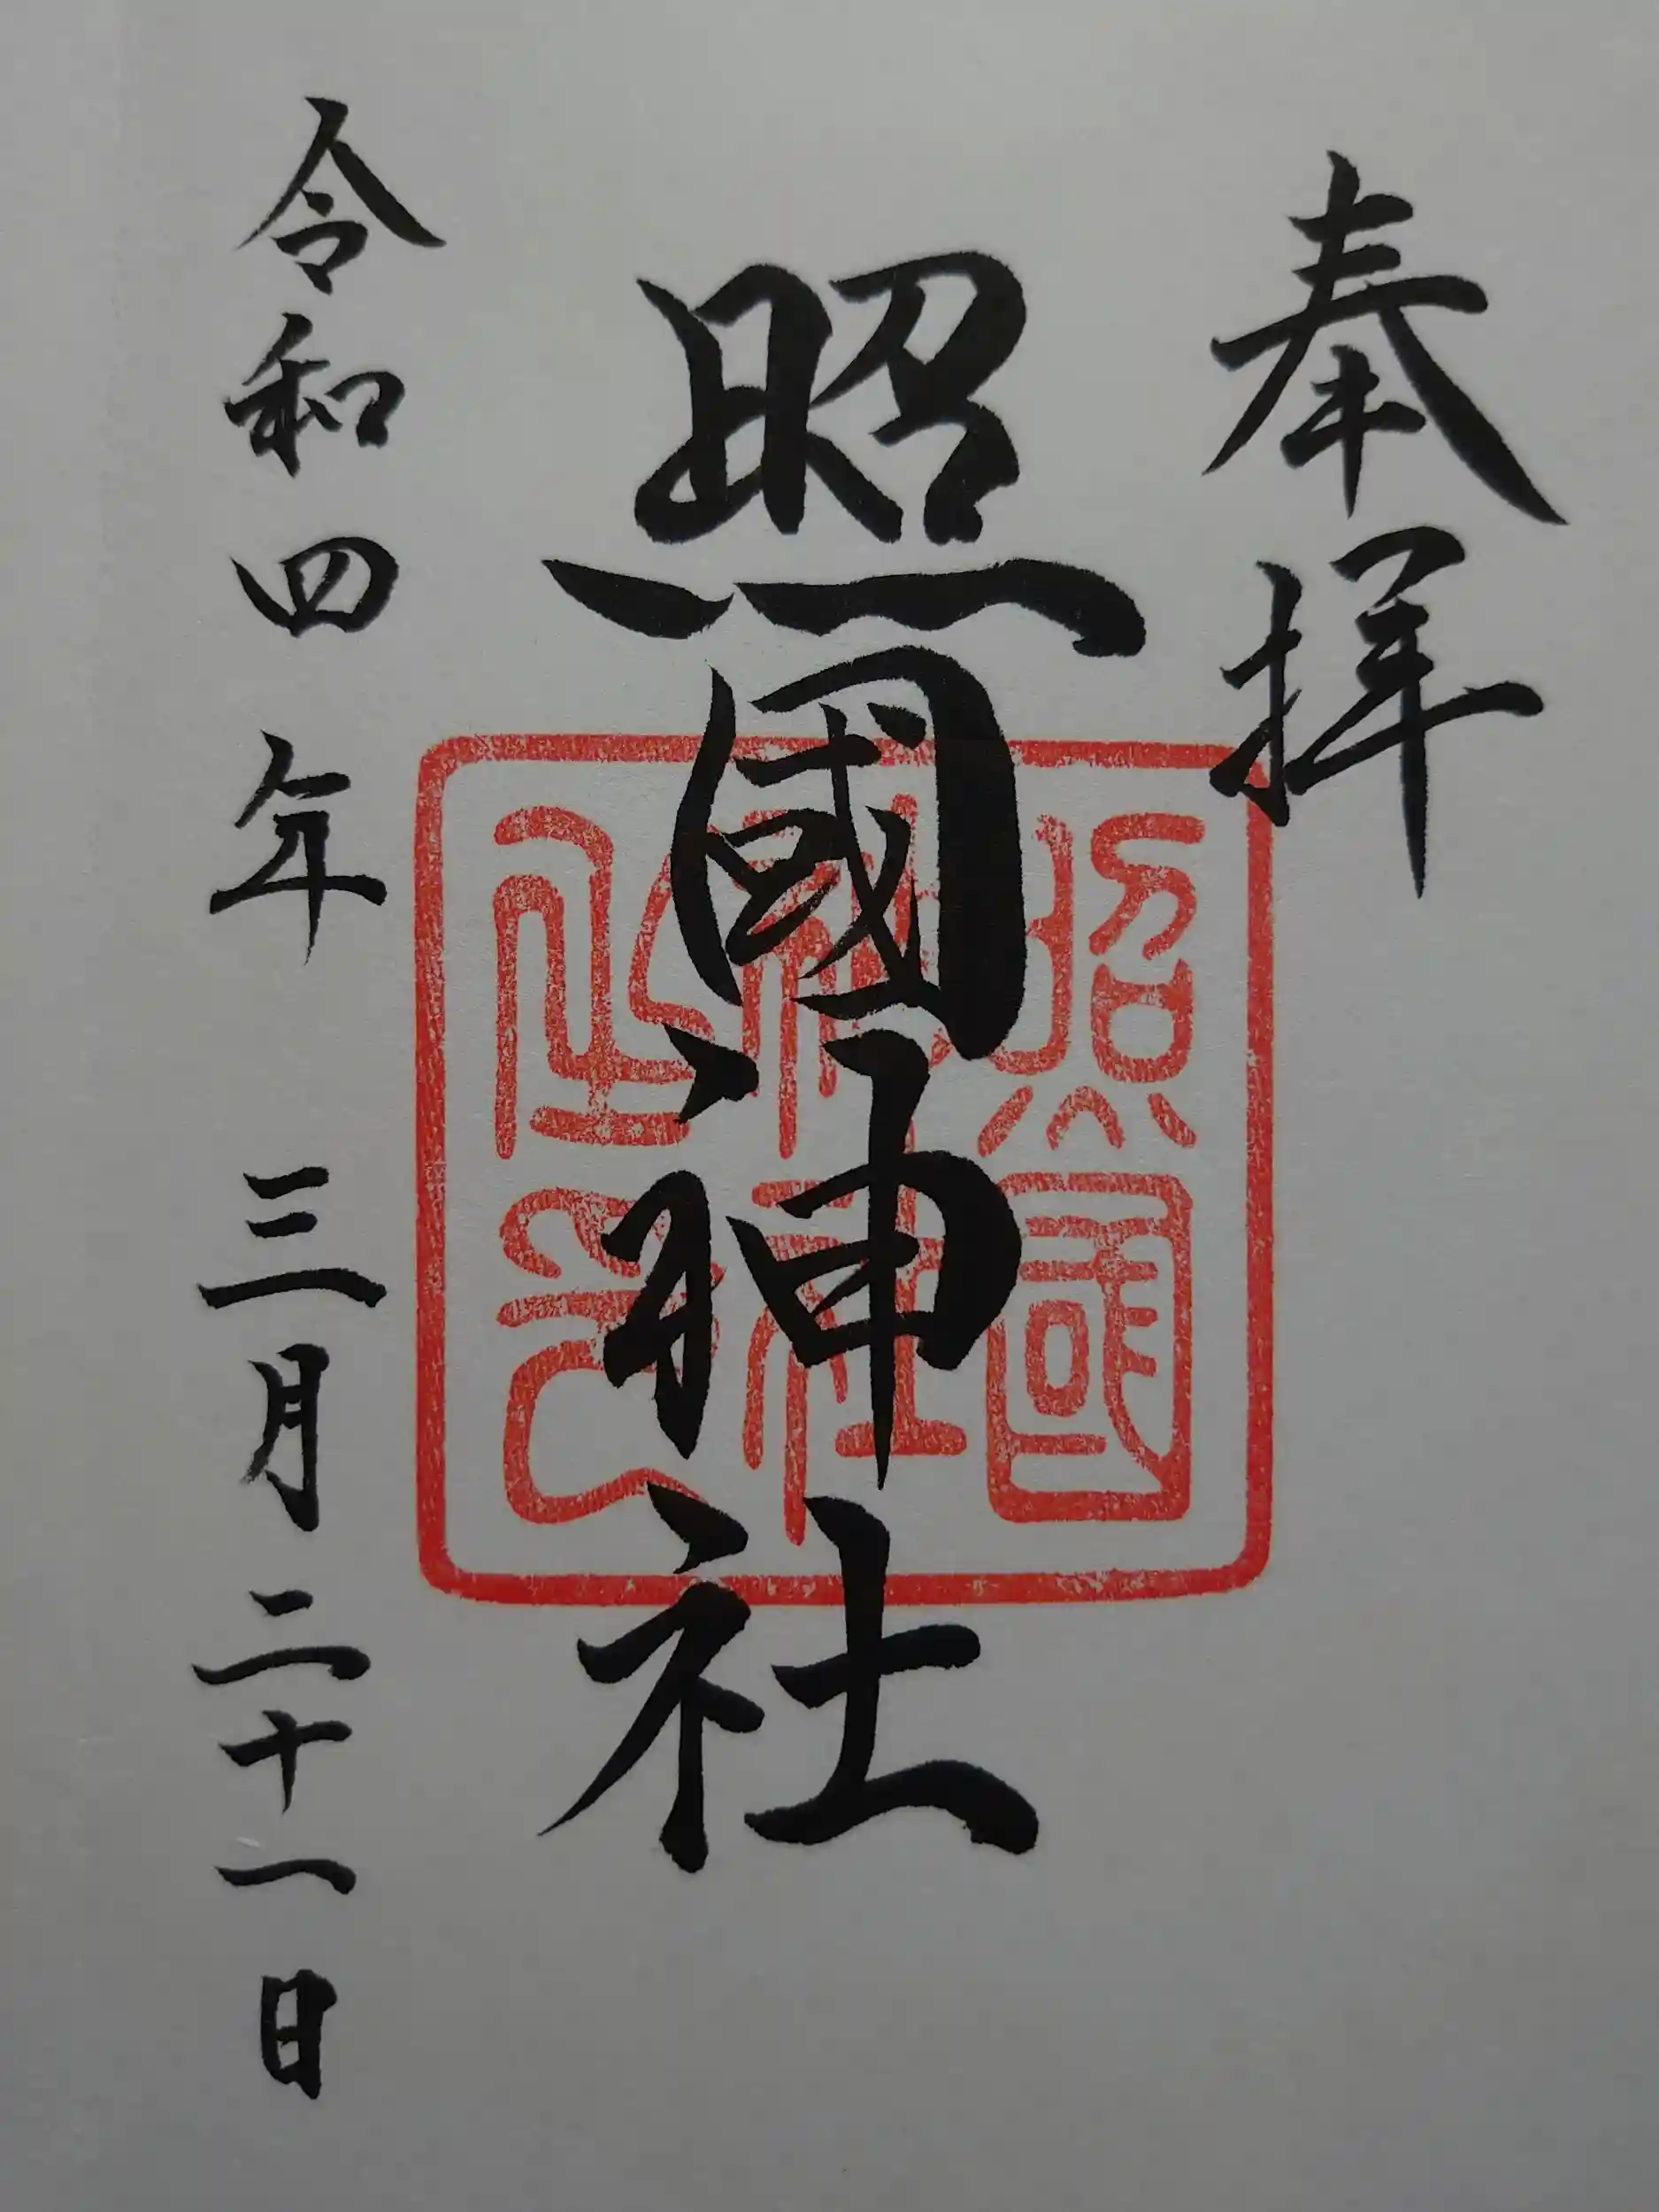 奉拝
照國神社
照國
神社
之印
令和四年 三月二十一日